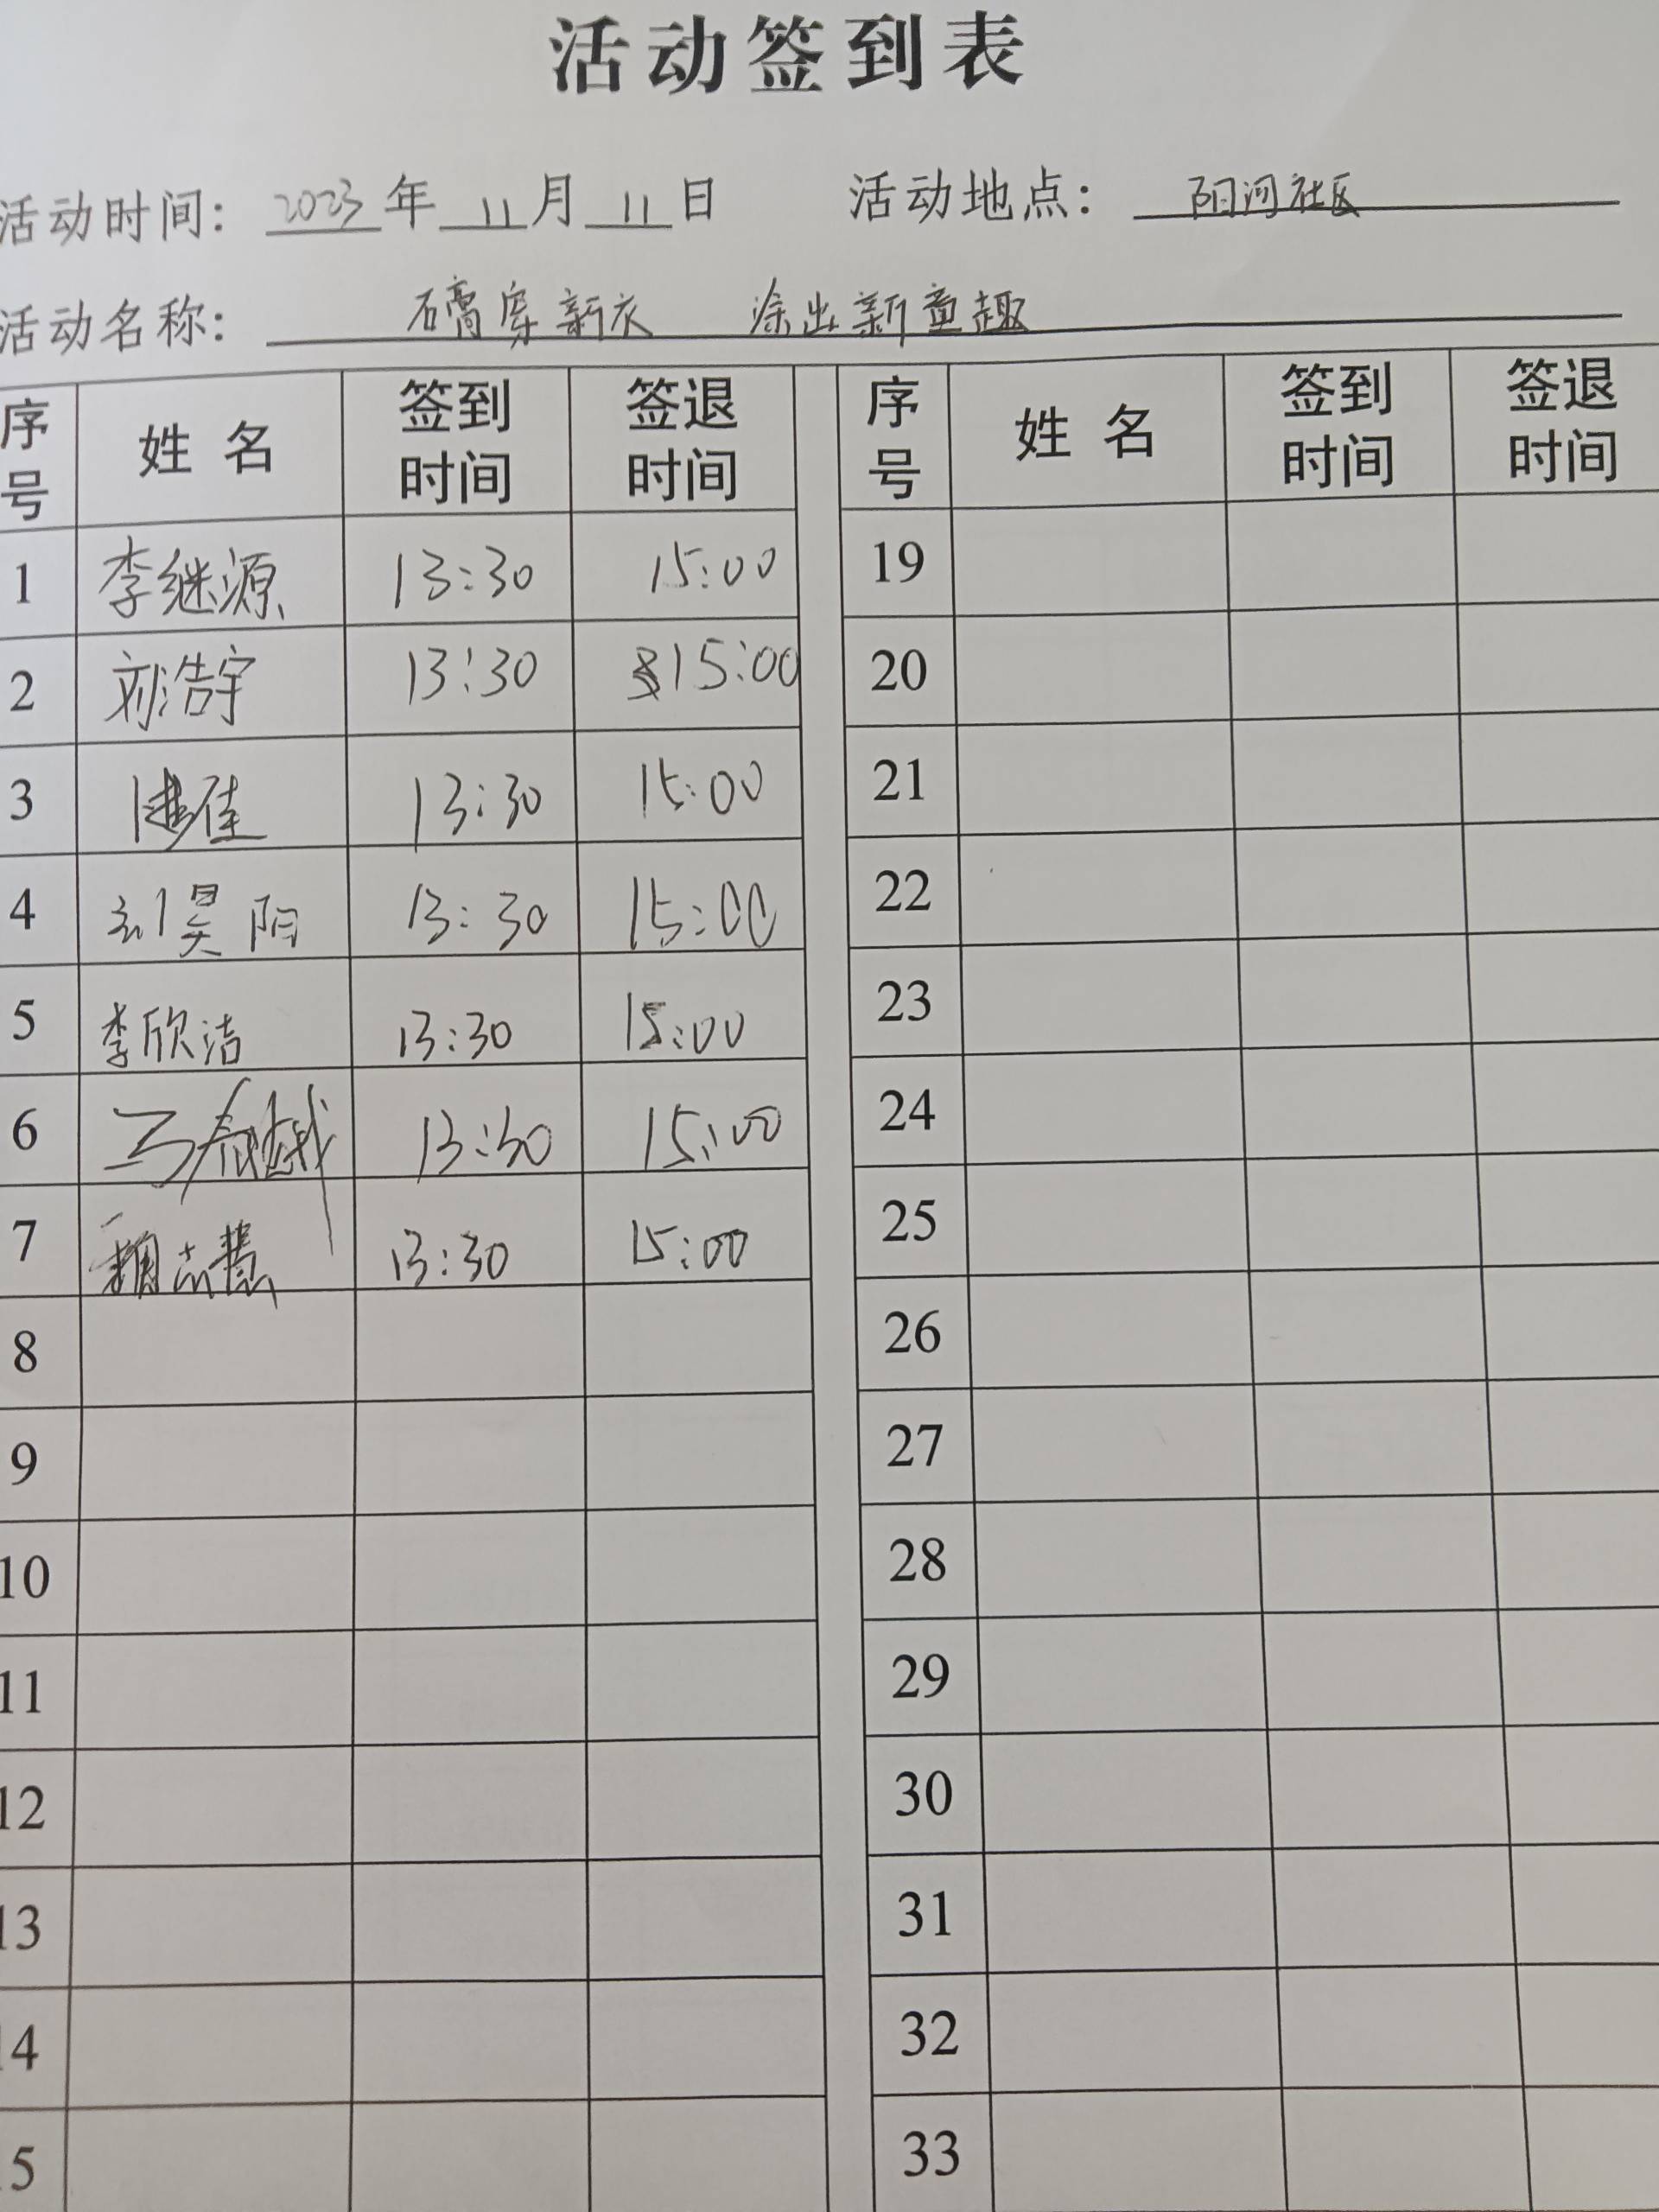 活动签到表
活动时间: 2023 年 11 月 11 日 活动地点: 阳河社区
活动名称: 石膏穿新衣 涂出新童趣
序号 姓名 签到时间 签退时间 序号 姓名 签到时间 签退时间
1 李继源 13:30 15:00 19
2 刘浩宇 13:30 15:00 20
3 13:30 15:00 21
4 刘昊阳 13:30 15:00 22
5 李欣洁 13:30 15:00 23
6 13:30 15:00 24
7 魏志慧 13:30 15:00 25
8 26
9 27
10 28
11 29
12 30
13 31
14 32
15 33